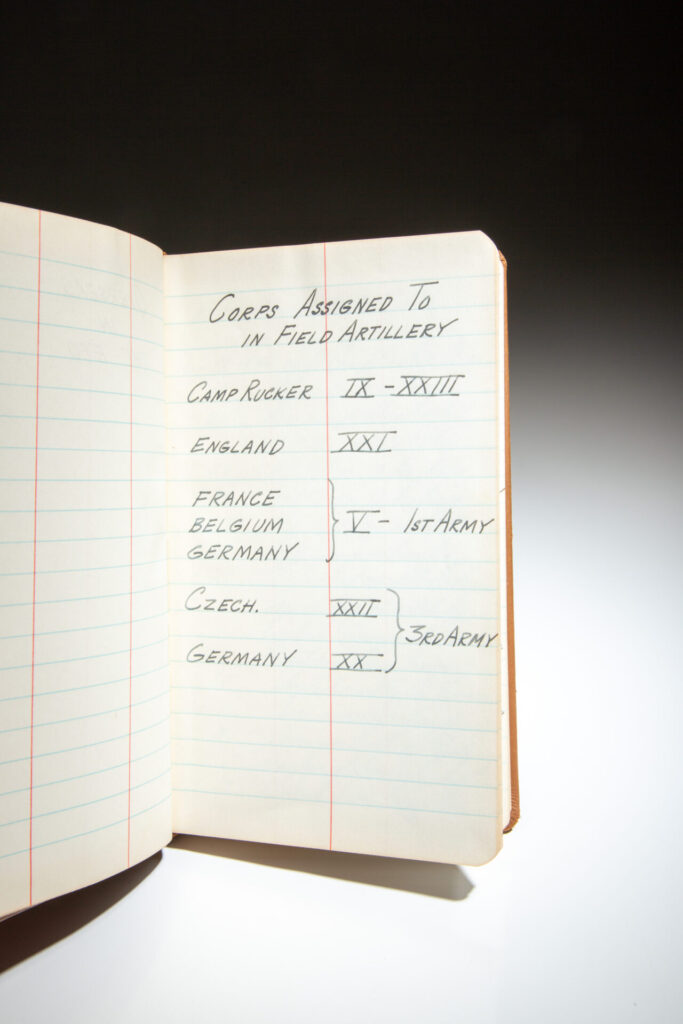 CORPS ASSIGNED TO
IN FIELD ARTILLERY
CAMP RUCKER IX - XXIII
ENGLAND XXI
FRANCE
BELGIUM V - 1ST ARMY
GERMANY
CZECH. XXII
3RD ARMY
GERMANY XX